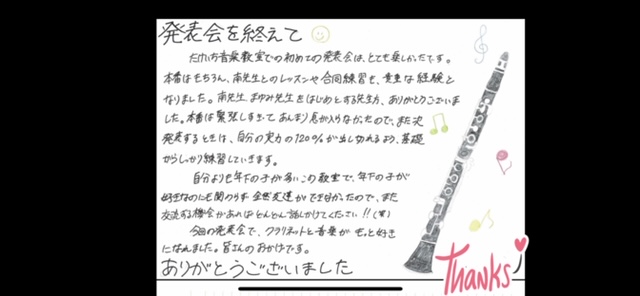 発表会を終えて
たけいち音楽教室での初めての発表会は、とても楽しかったです。
本番はもちろん、南先生とのレッスンや合同練習も、貴重な経験と
なりました。南先生、まゆみ先生をはじめとする先生方、ありがとうございま
した。本番は緊張しすぎて あんまり息が入らなかったので、また次
発表するときは、自分の実力の120%が出し切れるよう、基礎
からしっかり練習していきます。
自分よりも年下の子が多いこの教室で、年下の子が
好きなのにも関わらず全然友達ができなかったので、また
交流する機会があればどんどん話しかけてください!!(笑)
今回の発表会で、クラリネットと音楽が もっと好き
になれました。皆さんのおかげです。
ありがとうございました
THANKS